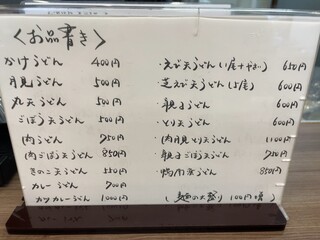 〈お品書き〉
かけうどん 400円
月見うどん 500円
丸天うどん 500円
ごぼう天うどん 500円
肉うどん 750円
肉ごぼう天うどん 850円
きのこ天うどん 550円
カレーうどん 700円
カツカレーうどん 1000円
・えび天うどん 650円
・芝えび天うどん 600円
・親子うどん 600円
・とり天うどん 600円
・肉月見とり天うどん 1100円
・親子ごぼう天うどん 750円
・鴨南蛮うどん 850円
(麺の大盛り 100円増)